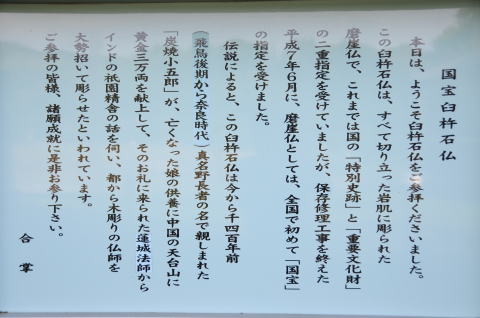 国宝臼杵石仏
本日は、ようこそ臼杵石仏をご参拝くださいました。
この臼杵石仏は、すべて切り立った岩肌に彫られた
磨崖仏で、これまでは国の「特別史跡」と「重要文化財」
の二重指定を受けていましたが、保存修理工事を終えた
平成7年6月に、磨崖仏としては、全国で初めて「国宝」
の指定を受けました。
伝説によると、この臼杵石仏は今から千四百年前
(飛鳥後期から奈良時代)真名野長者の名で親しまれた
「炭焼小五郎」が、亡くなった娘の供養に中国の天台山に
黄金三万両を献上して、そのお礼に来られた蓮城法師から
インドの祇園精舎の話を伺い、都から木彫りの仏師を
大勢招いて彫らせたといわれています。
ご参拝の皆様、諸願成就に是非お参り下さい。
合掌